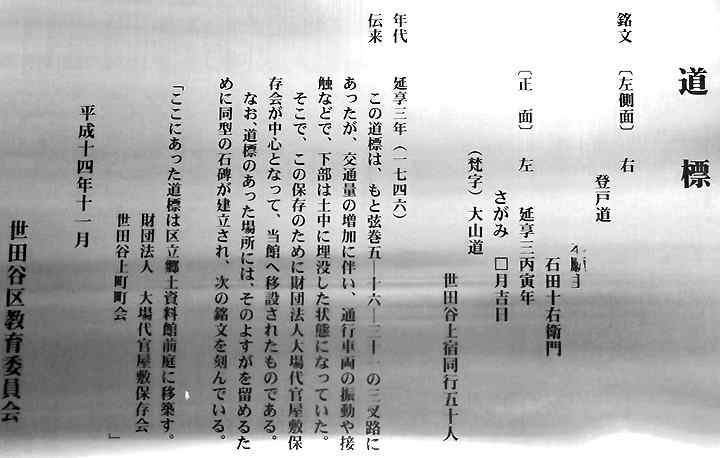 道標
銘文 〔左側面〕 右
登戸道
石田十右衛門
〔正 面〕 左 延享三丙寅年
さがみ □月吉日
（梵字）大山道
世田谷上宿同行五十人
年代 延享三年（一七四六）
伝来 この道標は、もと弦巻五―十六―三十一の三叉路に
あったが、交通量の増加に伴い、通行車両の振動や接
触などで、下部は土中に埋没した状態になっていた。
そこで、この保存のために財団法人大場代官屋敷保
存会が中心となって、当館へ移設されたものである。
なお、道標のあった場所には、そのよすがを留めるた
めに同型の石碑が建立され、次の銘文を刻んでいる。
「ここにあった道標は区立郷土資料館前庭に移築す。
財団法人 大場代官屋敷保存会
世田谷上町町会 」
平成十四年十一月
世田谷区教育委員会